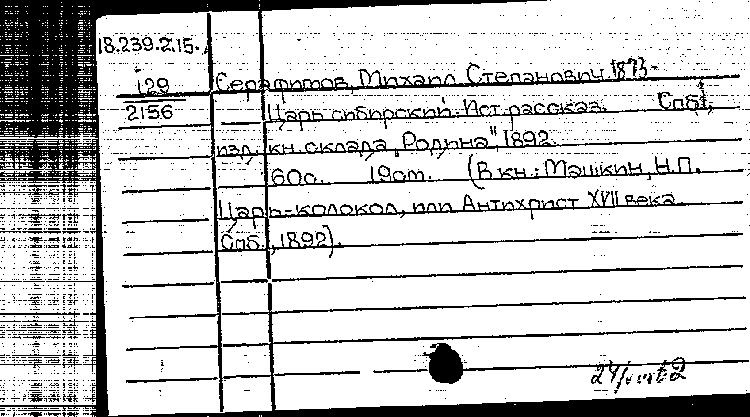 18.239.2.15.
129
2156
Серафимов, Михаил Степанович. 1873-
Царь сибирский. Ист. рассказ. Спб.,
изд. кн. склада "Родина", 1892.
60с. 19см. (В кн.: Машкин, Н.П.
Царь-колокол, или Антихрист XVII века.
Спб., 1892).